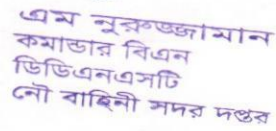 এম নুরুজ্জামান
কমান্ডার বিএন
ডিডিএনএসটি
নৌ বাহিনী সদর দপ্তর